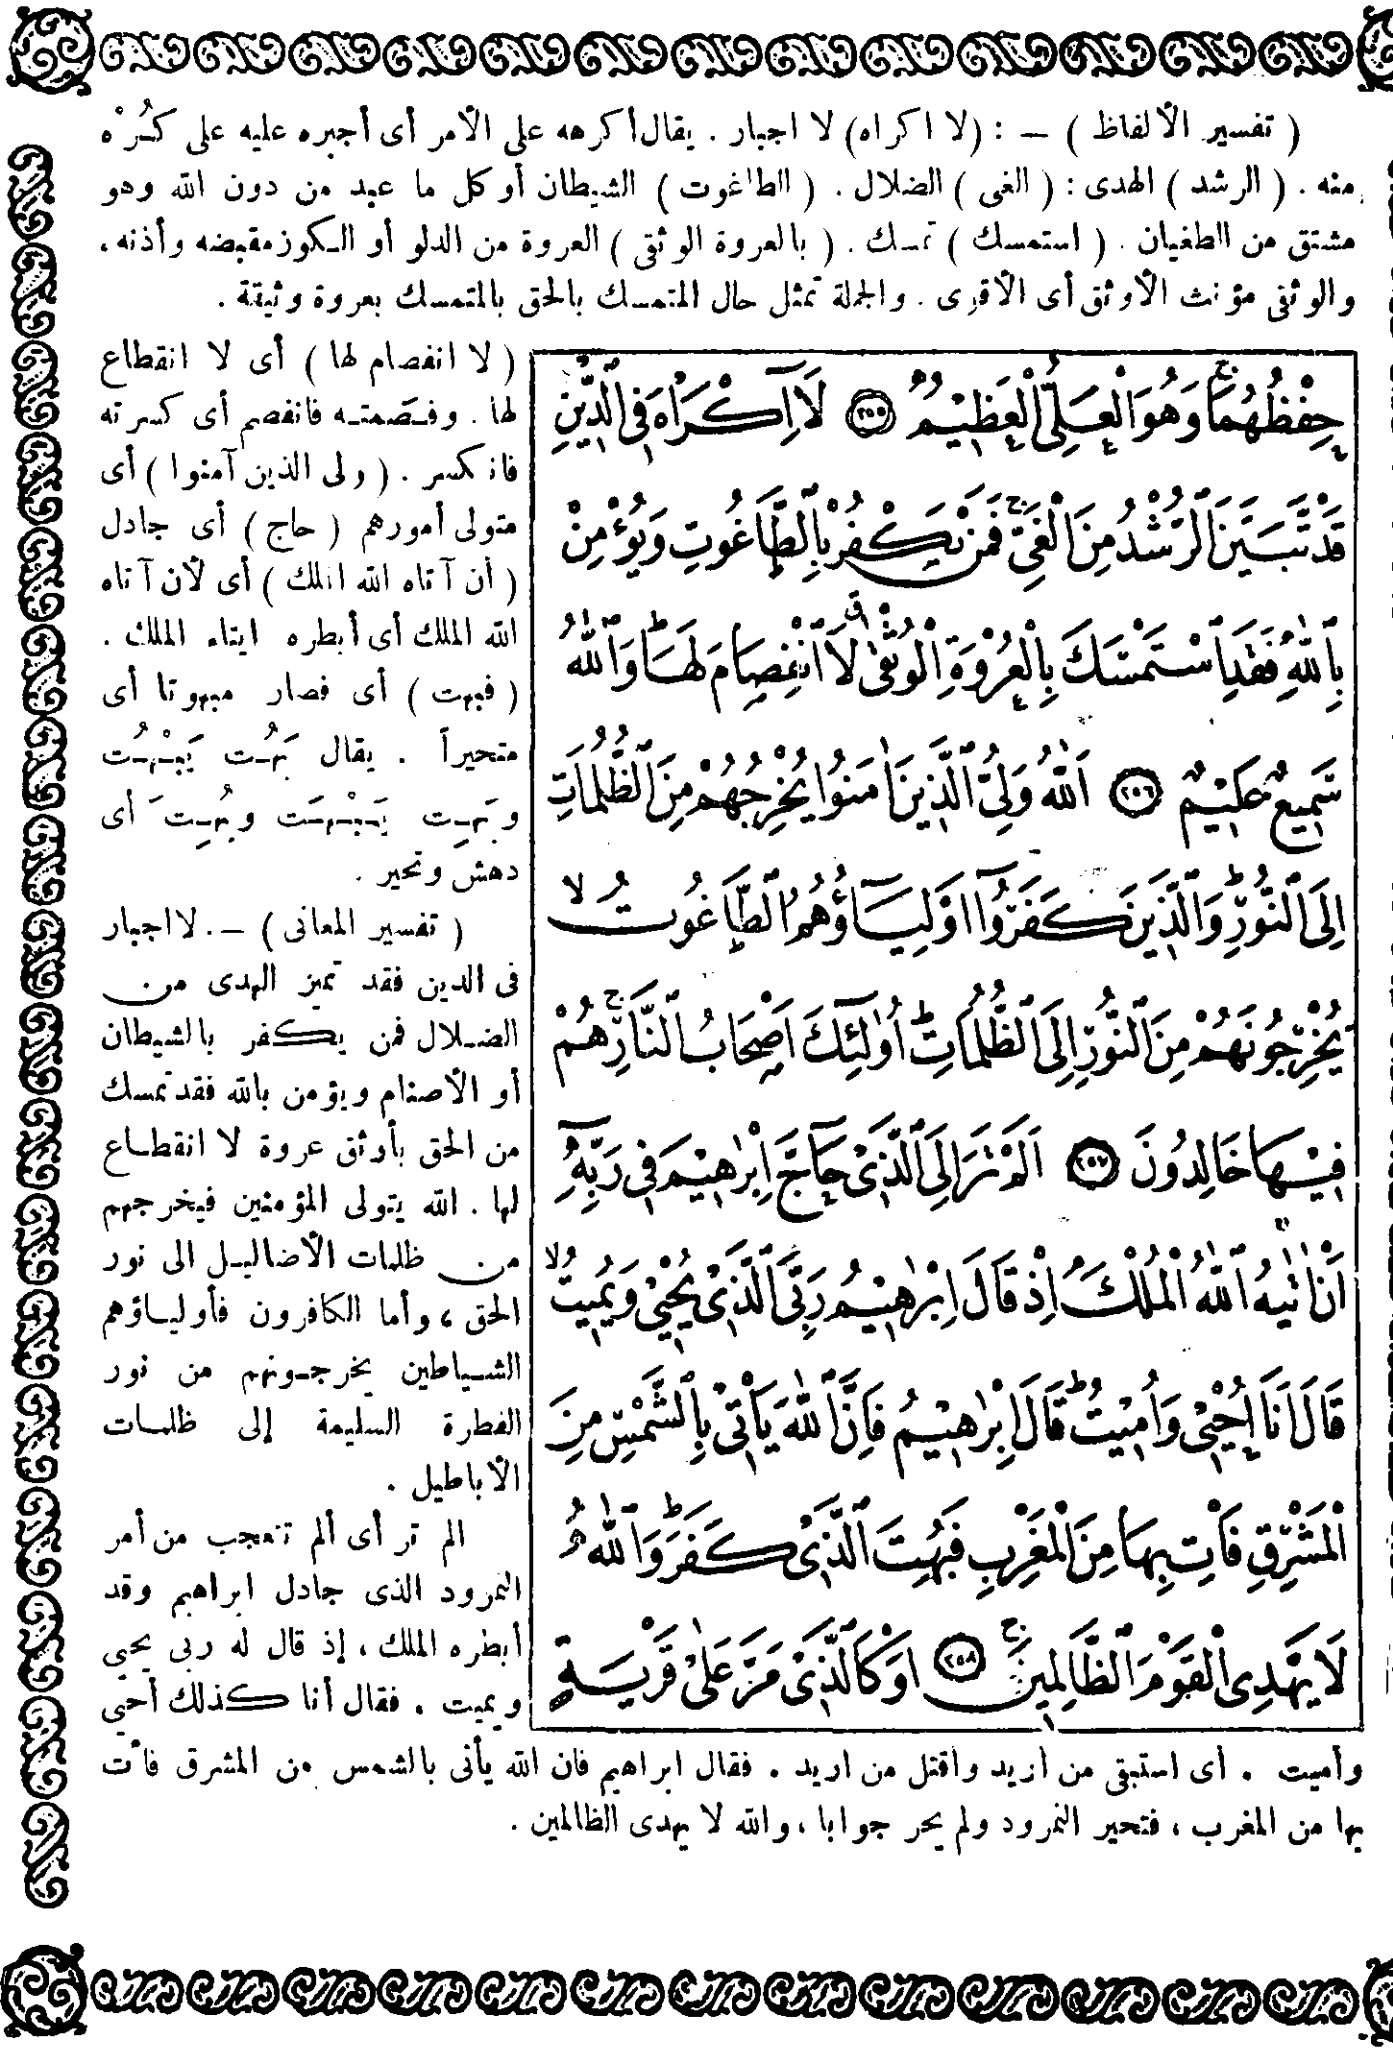 ( تفسير الألفاظ ) – : (لا اكراه) لا اجبار . يقال أكرهه على الأمر أى أجبره عليه على كُرْه
منه . ( الرشد ) الهدى : ( الغى ) الضلال . ( الطاغوت ) الشيطان أوكل ما عبد من دون الله وهو
مشتق من الطغيان . ( استمسك ) تمسك . ( بالعروة الوثقى ) العروة من الدلو أو الكوز مقبضه وأذنه ،
والوثقى مؤنث الأوثق أى الأقوى . والجملة تمثل حال المتمسك بالحق بالمتمسك بعروة وثيقة .
حِفْظُهُمَا وَهُوَ الْعَلِىُّ الْعَظِيْمُ ٢٥٥ لَا اِكْرَاهَ فِى الدِّيْنِ
قَدْ تَبَيَّنَ الرُّشْدُ مِنَ الْغَىِّ فَمَنْ يَكْفُرْ بِالطَّاغُوتِ وَيُؤْمِنْ
بِاللّٰهِ فَقَدِ اسْتَمْسَكَ بِالْعُرْوَةِ الْوُثْقٰى لَا انْفِصَامَ لَهَا وَاللّٰهُ
سَمِيعٌ عَلِيْمٌ ٢٥٦ اَللّٰهُ وَلِىُّ الَّذِينَ اٰمَنُوا يُخْرِجُهُمْ مِنَ الظُّلُمَاتِ
اِلَى النُّورِ وَالَّذِينَ كَفَرُوا اَوْلِيَاؤُهُمُ الطَّاغُوتُ
يُخْرِجُونَهُمْ مِنَ النُّورِ اِلَى الظُّلُمَاتِ اُولٰئِكَ اَصْحَابُ النَّارِ هُمْ
فِيْهَا خَالِدُونَ ٢٥٧ اَلَمْ تَرَ اِلَى الَّذِى حَاجَّ اِبْرٰهِيْمَ فِى رَبِّهِ
اَنْ اٰتٰيهُ اللّٰهُ الْمُلْكَ اِذْ قَالَ اِبْرٰهِيْمُ رَبِّىَ الَّذِى يُحْيِىْ وَيُمِيتُ
قَالَ اَنَا اُحْيِىْ وَاُمِيْتُ قَالَ اِبْرٰهِيْمُ فَاِنَّ اللّٰهَ يَأْتِىْ بِالشَّمْسِ مِنَ
الْمَشْرِقِ فَأْتِ بِهَا مِنَ الْمَغْرِبِ فَبُهِتَ الَّذِى كَفَرَ وَاللّٰهُ
لَا يَهْدِى الْقَوْمَ الظَّالِمِينَ ٢٥٨ اَوْ كَالَّذِى مَرَّ عَلٰى قَرْيَةٍ
( لا انفصام لها ) أى لا انقطاع
لها . وفصمته فانفصم أى كسرته
فانكسر . ( ولى الذين آمنوا ) أى
متولى أمورهم ( حاج ) أى جادل
( أن آتاه الله الملك ) أى لأن آتاه
الله الملك أى أبطره ايتاء الملك .
( فبهت ) أى فصار مبهوتا أى
متحيراً . يقال بَهُت يَبْهُت
وبَهِت يَبْهَت وبُهِتَ أى
دهش وتحير .
( تفسير المعانى ) – . لا اجبار
فى الدين فقد تميز الهدى من
الضلال فمن يكفر بالشيطان
أو الأصنام ويؤمن بالله فقد تمسك
من الحق بأوثق عروة لا انقطاع
لها . الله يتولى المؤمنين فيخرجهم
من ظلمات الأضاليل الى نور
الحق ، وأما الكافرون فأولياؤهم
الشياطين يخرجونهم من نور
الفطرة السليمة إلى ظلمات
الأباطيل .
الم تر أى ألم تتعجب من أمر
النمرود الذى جادل ابراهيم وقد
أبطره الملك ، إذ قال له ربى يحيى
ويميت . فقال أنا كذلك أحيى
وأميت . أى استبقى من أريد واقتل من اريد . فقال ابراهيم فان الله يأتى بالشمس من المشرق فأت
بها من المغرب ، فتحير النمرود ولم يحر جوابا ، والله لا يهدى الظالمين .